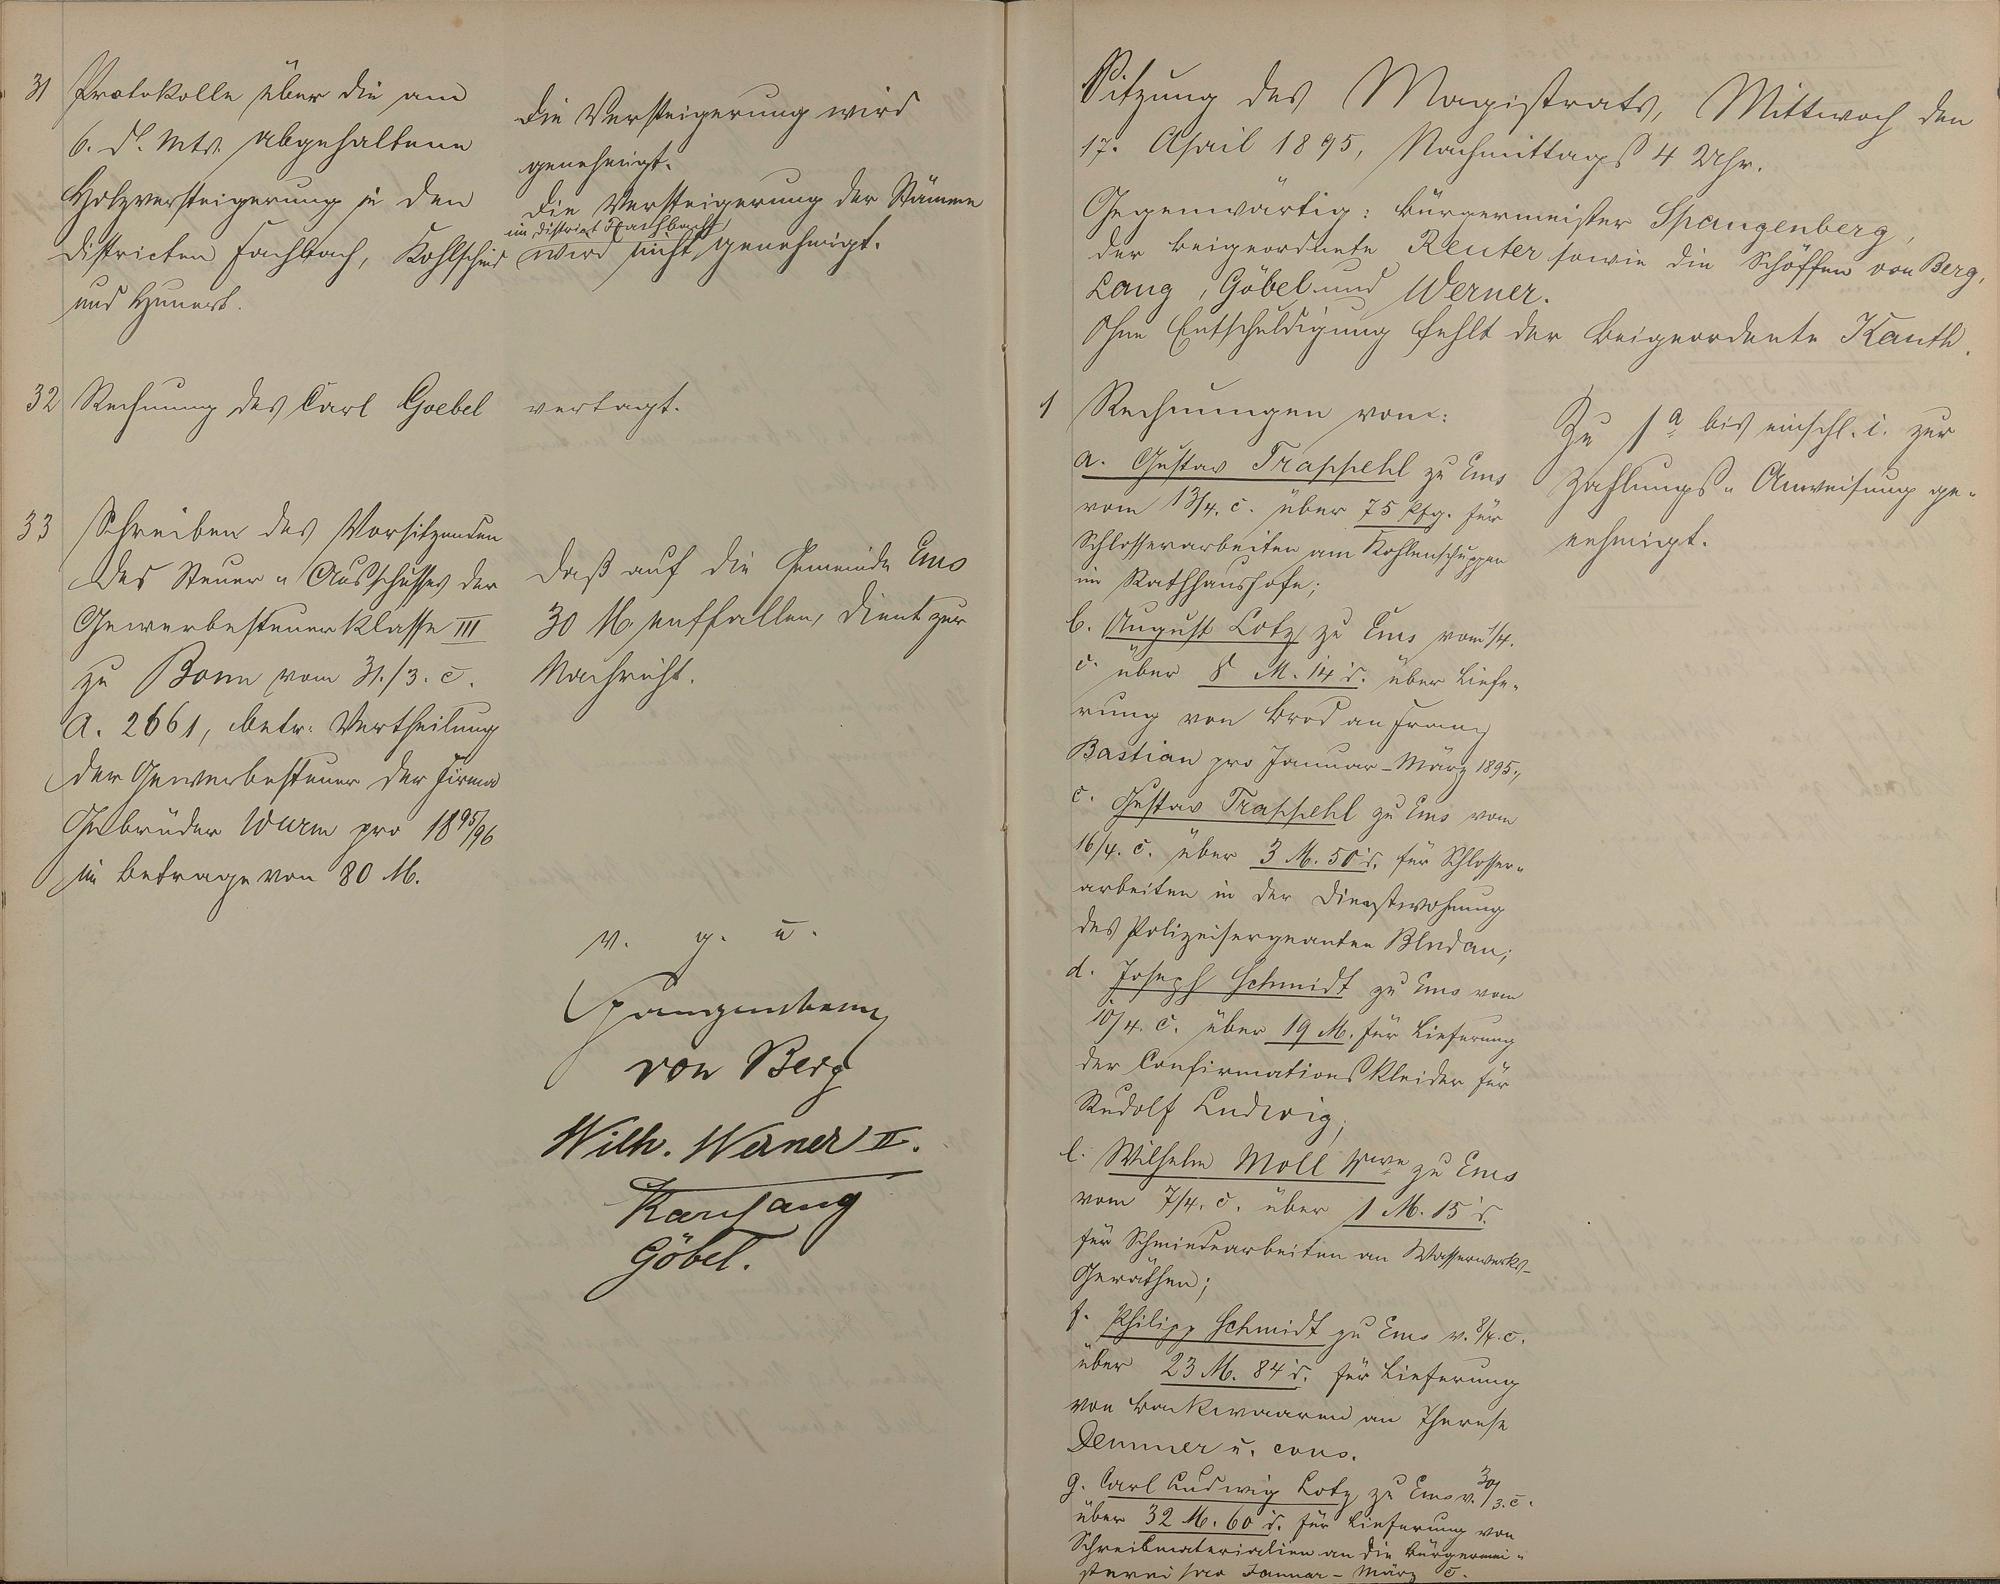 31 Protokolle über die am
6. d. Mts. abgehaltene
Holzversteigerung in den
Distrikten Fachbach, Kohlscheid
und Hunert.
Die Versteigerung wird
genehmigt.
Die Versteigerung der Stämme
im Distrikt Fachbach
wird nicht genehmigt.
32 Rechnung des Carl Goebel
vertagt.
33 Schreiben des Vorsitzenden
des Steuer-Ausschusses der
Gewerbesteuerklasse III
zu Bonn vom 31./3. c.
A. 2661, betr. Vertheilung
der Gewerbesteuer der Firma
Gebrüder Wurm pro 1895/96
im Betrage von 80 M.
Daß auf die Gemeinde Ems
30 M. entfallen, dient zur
Nachricht.
v. g. u.
Spangenberg
von Berg
Wilh. Werner II.
Karl Lang
Göbel.
Sitzung des Magistrats, Mittwoch den
17. April 1895, Nachmittags 4 Uhr.
Gegenwärtig: Bürgermeister Spangenberg,
der Beigeordnete Reuter sowie die Schöffen von Berg,
Lang, Göbel und Werner.
Ohne Entschuldigung fehlt der Beigeordnete Kauth.
1 Rechnungen vom:
a. Gustav Trappehl zu Ems
vom 13/4. c. über 75 Pfg. für
Schlosserarbeiten am Kohlenschuppen
im Rathhaushofe;
b. August Lotz zu Ems vom 1/4.
c. über 8 M. 14 d. über Liefe-
rung von Brod an Franz
Bastian pro Januar-März 1895;
c. Gustav Trappehl zu Ems vom
16/4. c. über 3 M. 50 d. für Schlosser-
arbeiten in der Dienstwohnung
des Polizeisergeanten
d. Joseph Schmidt zu Ems vom
10/4. c. über 19 M. für Lieferung
der Confirmationskleider für
Rudolf Ludwig;
e. Wilhelm Moll Wwe zu Ems
vom 7/4. c. über 1 M. 15 d.
für Schmiedearbeiten an Wasserwerks-
Geräthen;
f. Philipp Schmidt zu Ems v. 8/4. c.
über 23 M. 84 d. für Lieferung
von Backwaaren an Therese
Demmer u. cons.
g. Carl Ludwig Lotz zu Ems v. 30/3. c.
über 32 M. 60 d. für Lieferung von
Schreibmaterialien an die Bürgermei-
sterei pro Januar-März c.
Zu 1 a bis einschl. i. zur
Zahlungs-Anweisung ge-
nehmigt.